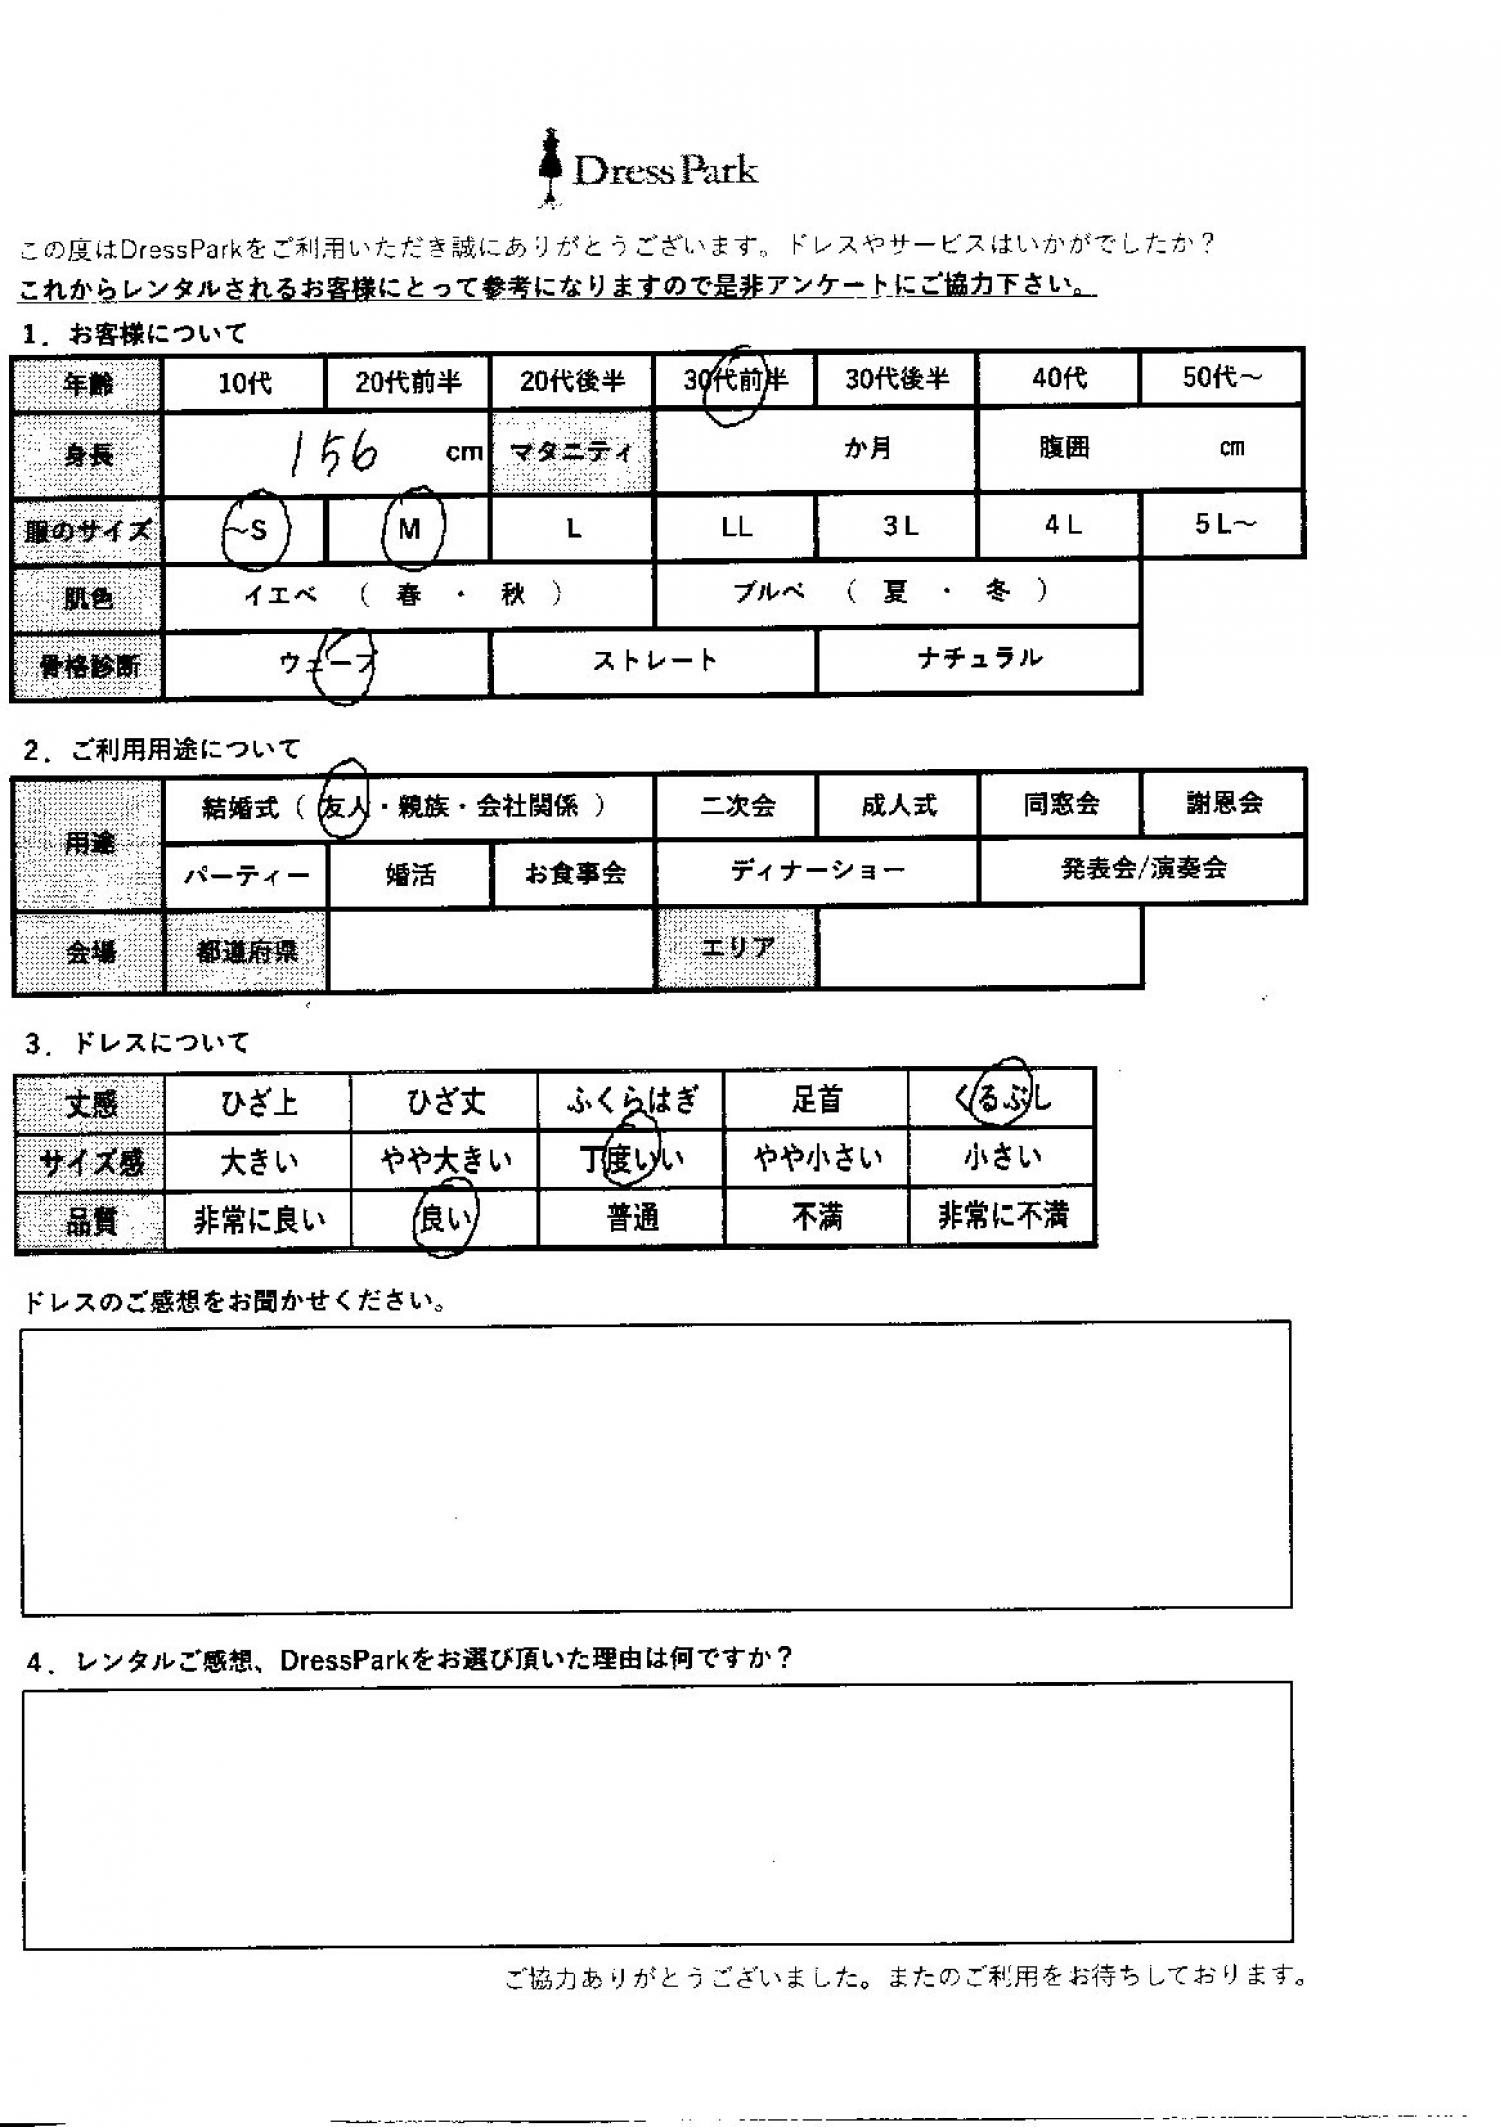 Dress Park
この度はDressParkをご利用いただき誠にありがとうございます。ドレスやサービスはいかがでしたか？
これからレンタルされるお客様にとって参考になりますので是非アンケートにご協力下さい。
1．お客様について
年齢 10代 20代前半 20代後半 30代前半 30代後半 40代 50代～
身長 156 cm マタニティ か月 腹囲 cm
服のサイズ ～S M L LL 3L 4L 5L～
肌色 イエベ （ 春 ・ 秋 ） ブルベ （ 夏 ・ 冬 ）
骨格診断 ウェーブ ストレート ナチュラル
2．ご利用用途について
用途 結婚式（ 友人・親族・会社関係 ） 二次会 成人式 同窓会 謝恩会
パーティー 婚活 お食事会 ディナーショー 発表会/演奏会
会場 都道府県 エリア
3．ドレスについて
丈感 ひざ上 ひざ丈 ふくらはぎ 足首 くるぶし
サイズ感 大きい やや大きい 丁度いい やや小さい 小さい
品質 非常に良い 良い 普通 不満 非常に不満
ドレスのご感想をお聞かせください。
4．レンタルご感想、DressParkをお選び頂いた理由は何ですか？
ご協力ありがとうございました。またのご利用をお待ちしております。